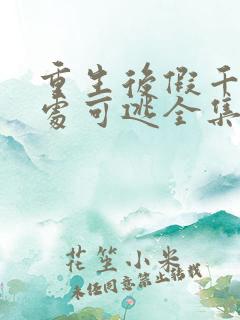 重生後假千
處可逃全集
花笙小米
未经同意禁止转载